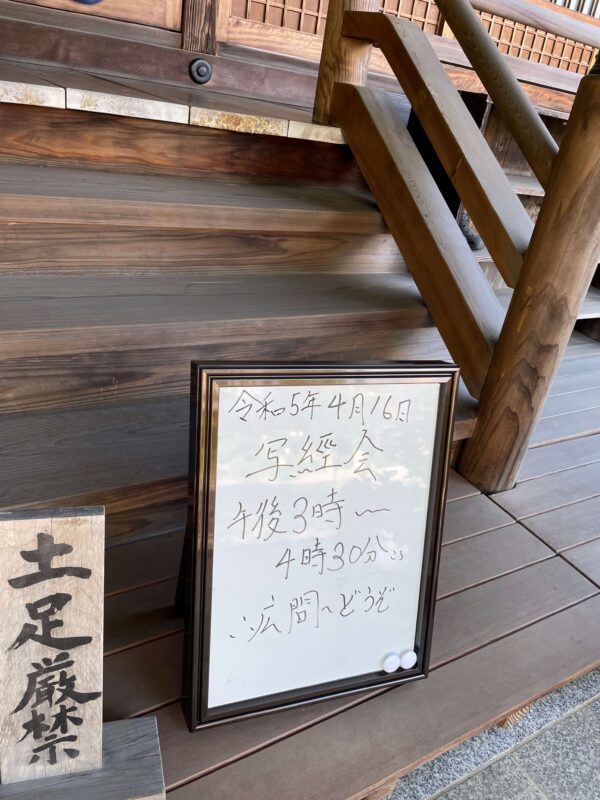 令和5年4月16日
写經会
午後3時〜
4時30分ころ
広間へどうぞ
土足厳禁